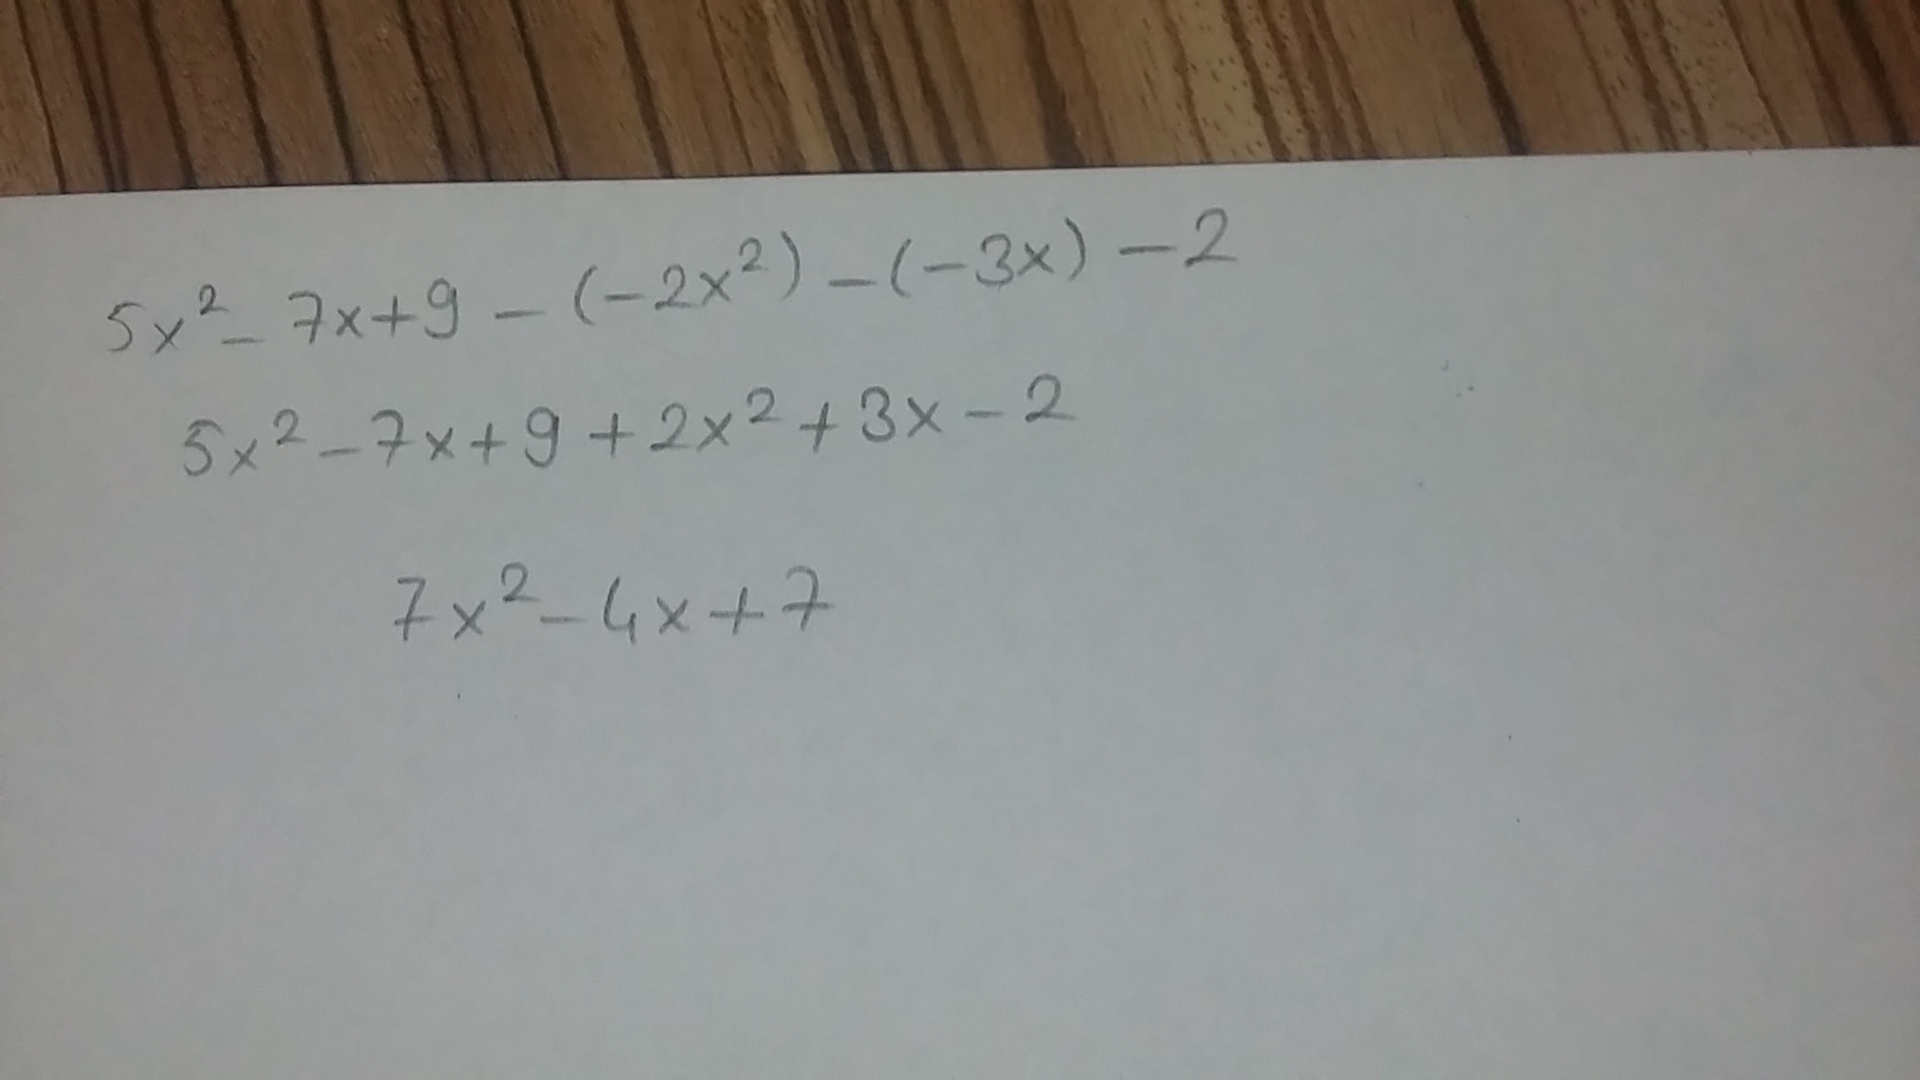 5x² - 7x + 9 - (-2x²) - (-3x) - 2
5x² - 7x + 9 + 2x² + 3x - 2
7x² - 4x + 7